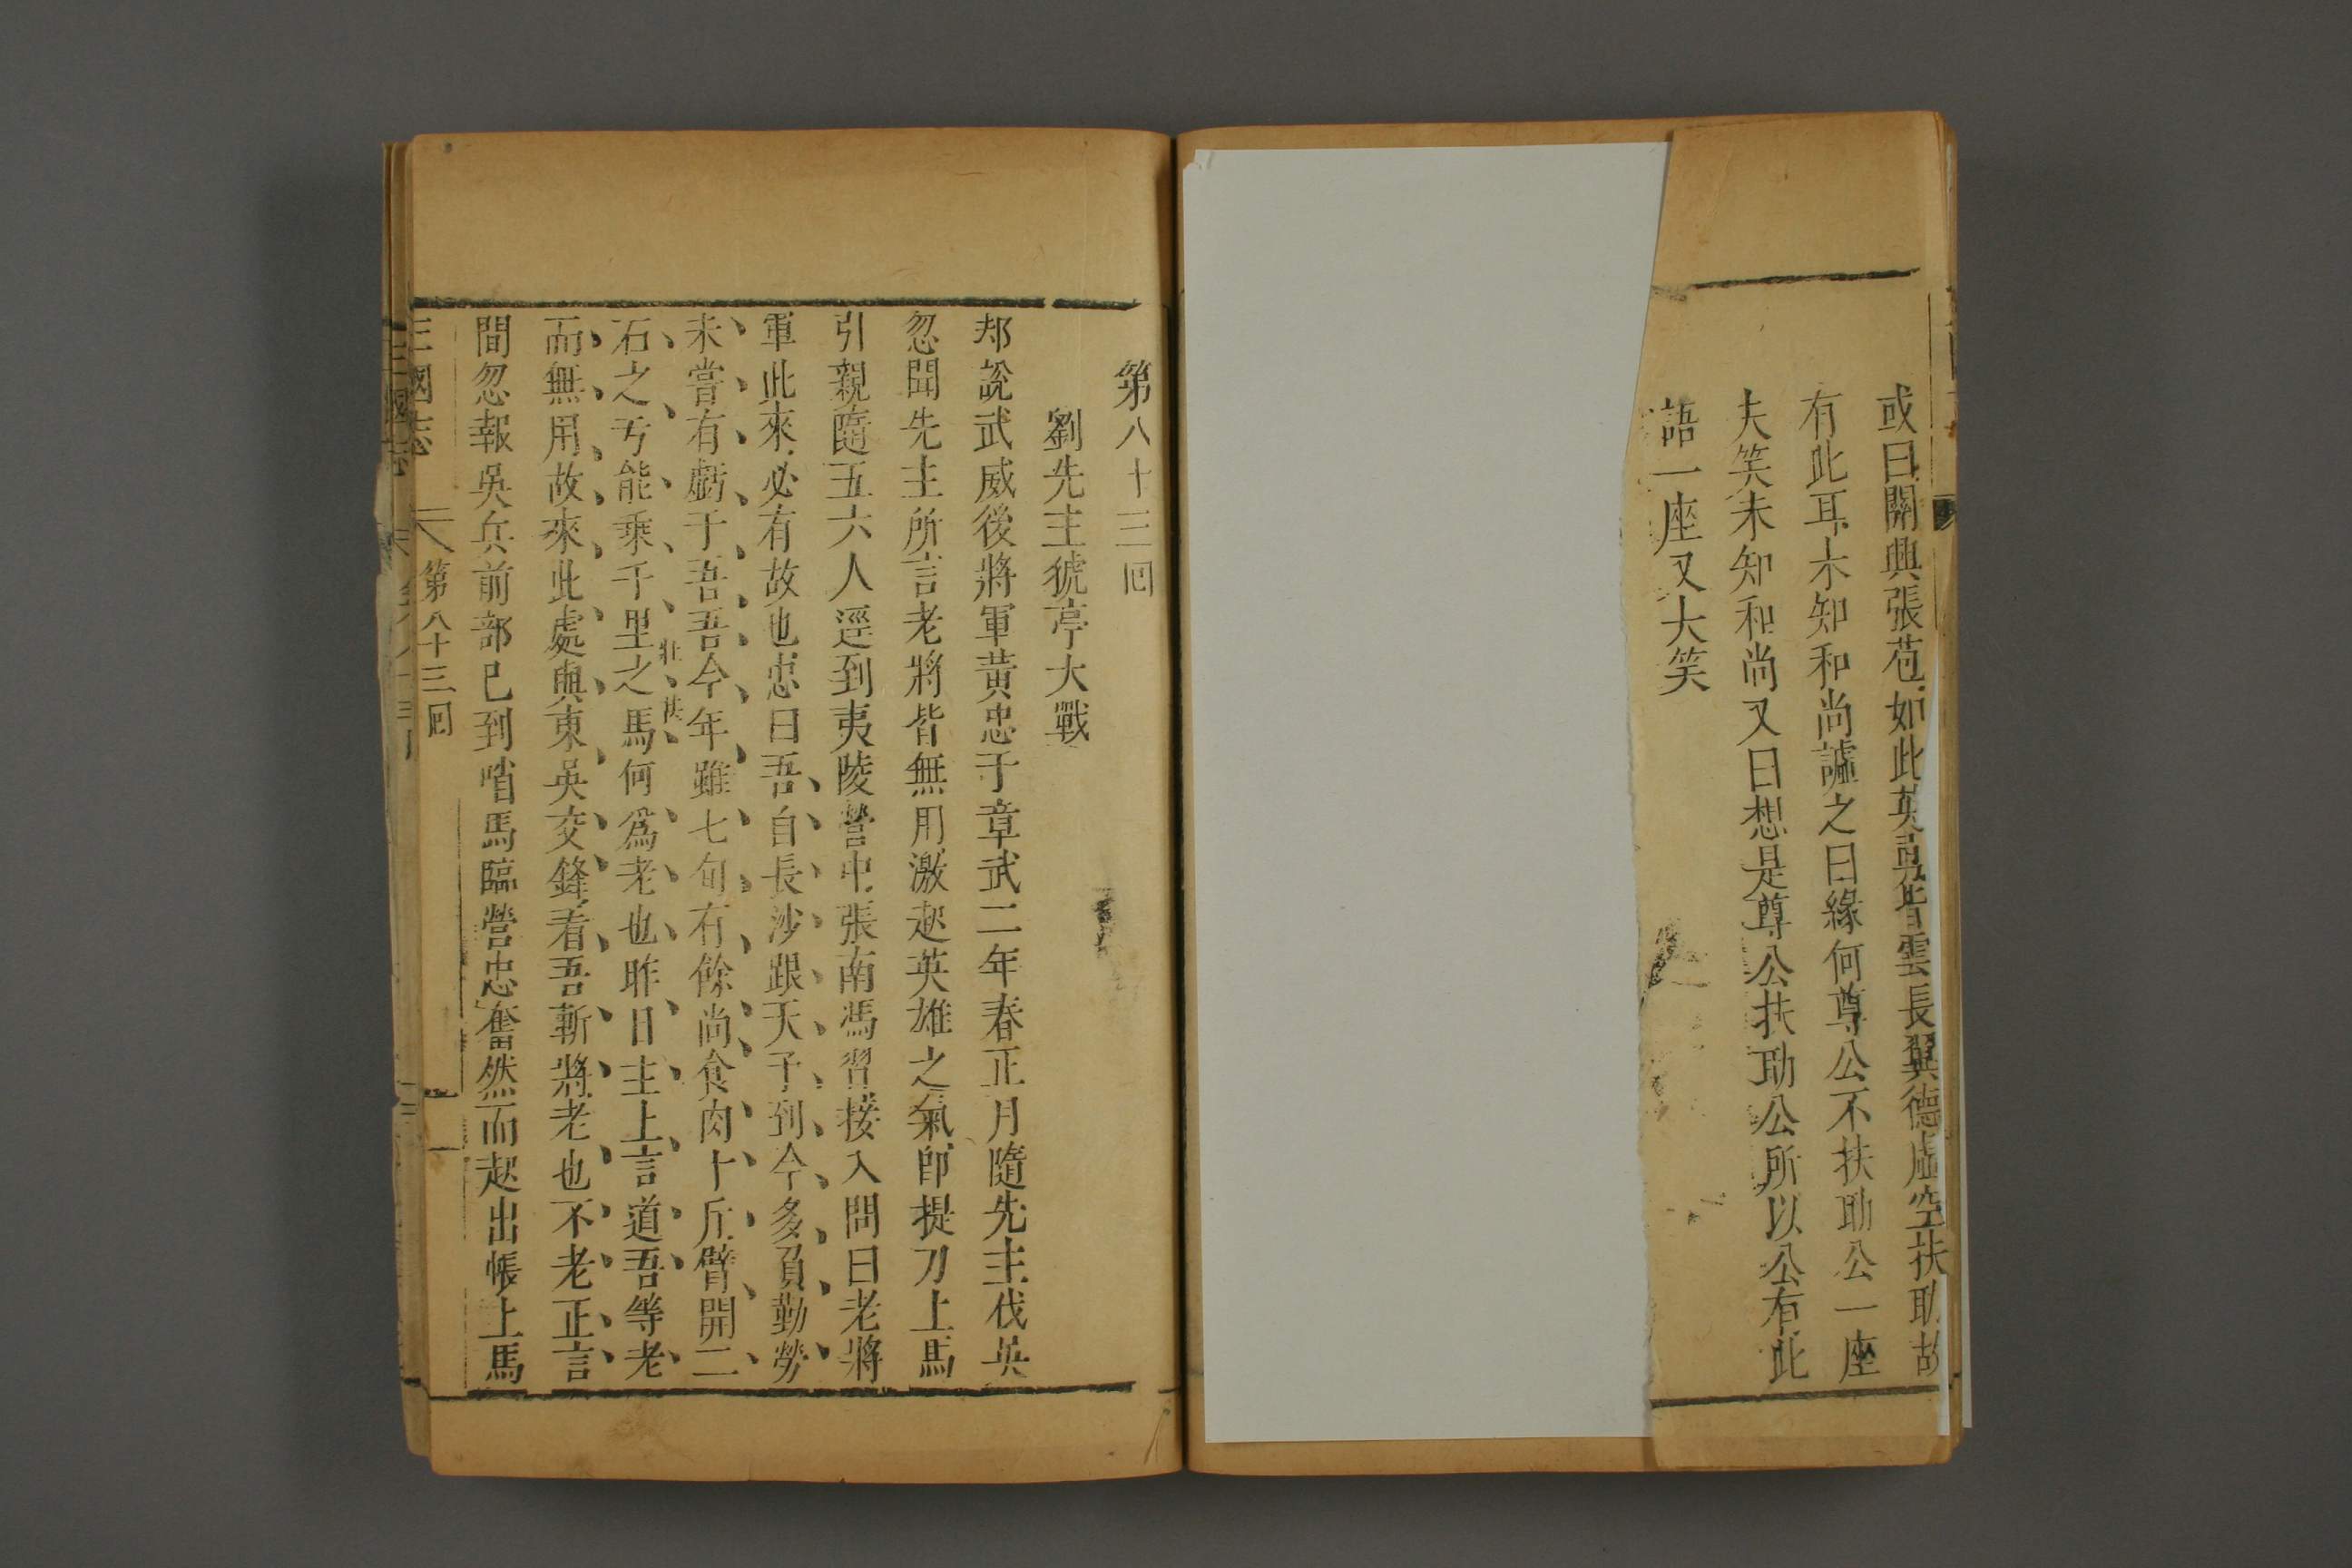 或曰關興張苞如此英勇皆雲長翼德虛空扶助故
有此耳未知和尚謔之曰緣何尊公不扶助公一座
大笑未知和尚又曰想是尊公扶助公所以公有此
語一座又大笑
第八十三回
劉先主猇亭大戰
却說武威後將軍黃忠于章武二年春正月隨先主伐吳
忽聞先主所言老將皆無用激起英雄之氣即提刀上馬
引親隨五六人逕到夷陵營中張南馮習接入問曰老將
軍此來必有故也忠曰吾自長沙跟天子到今多負勤勞
未嘗有虧于吾吾今年雖七旬有餘尚食肉十斤臂開二
石之弓能乘千里之馬何為老也昨日主上言道吾等老
而無用故來此處與東吳交鋒看吾斬將老也不老正言
間忽報吳兵前部已到哨馬臨營忠奮然而起出帳上馬
三國志 第八十三回